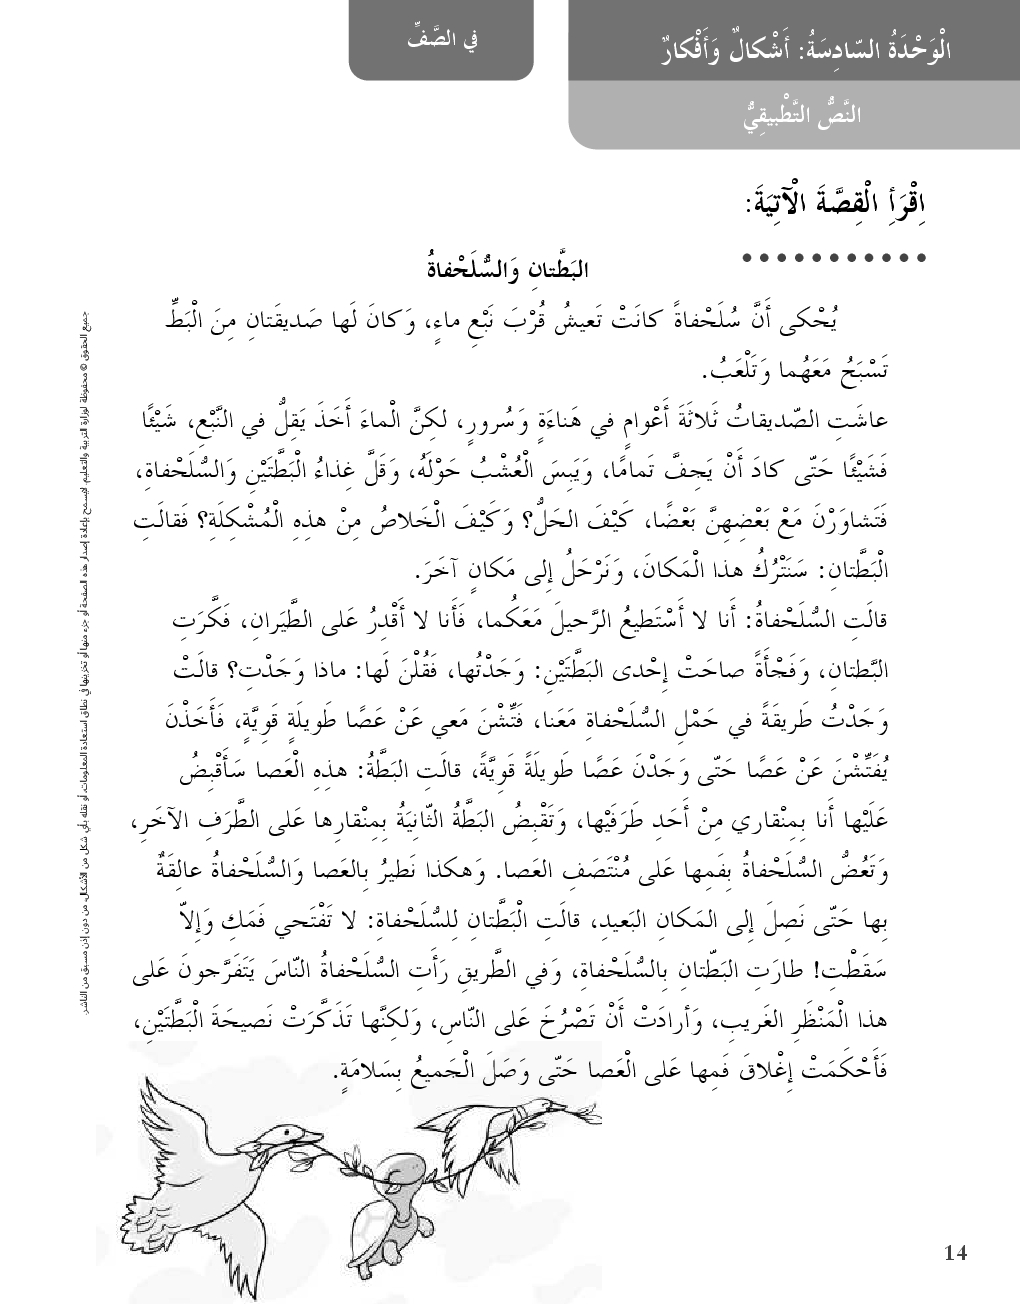 الْوَحْدَةُ السّادِسَةُ: أَشْكالٌ وَأَفْكارٌ
في الصَّفِّ
النَّصُّ التَّطْبيقِيُّ
اِقْرَأِ الْقِصَّةَ الْآتِيَةَ:
البَطَّتانِ وَالسُّلَحْفاةُ
يُحْكى أَنَّ سُلَحْفاةً كانَتْ تَعيشُ قُرْبَ نَبْعِ ماءٍ، وَكانَ لَها صَديقَتانِ مِنَ الْبَطِّ
تَسْبَحُ مَعَهُما وَتَلْعَبُ.
عاشَتِ الصّديقاتُ ثَلاثَةَ أَعْوامٍ في هَناءَةٍ وَسُرورٍ، لكِنَّ الْماءَ أَخَذَ يَقِلُّ في النَّبْعِ، شَيْئًا
فَشَيْئًا حَتّى كادَ أَنْ يَجِفَّ تَمامًا، وَيَبِسَ الْعُشْبُ حَوْلَهُ، وَقَلَّ غِذاءُ الْبَطَّتَيْنِ وَالسُّلَحْفاةِ،
فَتَشاوَرْنَ مَعْ بَعْضِهِنَّ بَعْضًا، كَيْفَ الحَلُّ؟ وَكَيْفَ الْخَلاصُ مِنْ هذِهِ الْمُشْكِلَةِ؟ فَقالَتِ
الْبَطَّتانِ: سَنَتْرُكُ هذا الْمَكانَ، وَنَرْحَلُ إِلى مَكانٍ آخَرَ.
قالَتِ السُّلَحْفاةُ: أَنا لا أَسْتَطيعُ الرَّحيلَ مَعَكُما، فَأَنا لا أَقْدِرُ عَلى الطَّيَرانِ، فَكَّرَتِ
البَّطتانِ، وَفَجْأَةً صاحَتْ إِحْدى البَطَّتَيْنِ: وَجَدْتُها، فَقُلْنَ لَها: ماذا وَجَدْتِ؟ قالَتْ
وَجَدْتُ طَريقَةً في حَمْلِ السُّلَحْفاةِ مَعَنا، فَتِّشْنَ مَعي عَنْ عَصًا طَويلَةٍ قَوِيَّةٍ، فَأَخَذْنَ
يُفَتِّشْنَ عَنْ عَصًا حَتّى وَجَدْنَ عَصًا طَويلَةً قَوِيَّةً، قالَتِ البَطَّةُ: هذِهِ الْعَصا سَأَقْبِضُ
عَلَيْها أَنا بِمِنْقاري مِنْ أَحَدِ طَرَفَيْها، وَتَقْبِضُ البَطَّةُ الثّانِيَةُ بِمِنْقارِها عَلى الطَّرَفِ الآخَرِ،
وَتَعُضُّ السُّلَحْفاةُ بِفَمِها عَلى مُنْتَصَفِ العَصا. وَهكذا نَطيرُ بِالعَصا وَالسُّلَحْفاةُ عالِقَةٌ
بِها حَتّى نَصِلَ إِلى المَكانِ البَعيدِ، قالَتِ الْبَطَّتانِ لِلسُّلَحْفاةِ: لا تَفْتَحي فَمَكِ وَإِلاّ
سَقَطْتِ! طارَتِ البَطّتانِ بِالسُّلَحْفاةِ، وَفي الطَّريقِ رَأَتِ السُّلَحْفاةُ النّاسَ يَتَفَرَّجونَ عَلى
هذا الْمَنْظَرِ الغَريبِ، وَأَرادَتْ أَنْ تَصْرُخَ عَلى النّاسِ، وَلكِنَّها تَذَكَّرَتْ نَصيحَةَ البَطَّتَيْنِ،
فَأَحْكَمَتْ إِغْلاقَ فَمِها عَلى الْعَصا حَتّى وَصَلَ الْجَميعُ بِسَلامَةٍ.
جميع الحقوق © محفوظة لوزارة التربية والتعليم. لا يسمح بإعادة إصدار هذه الصفحة أو جزء منها أو تخزينها في نطاق استعادة المعلومات، أو نقله بأي شكل من الأشكال، من دون إذن مسبق من الناشر.
14